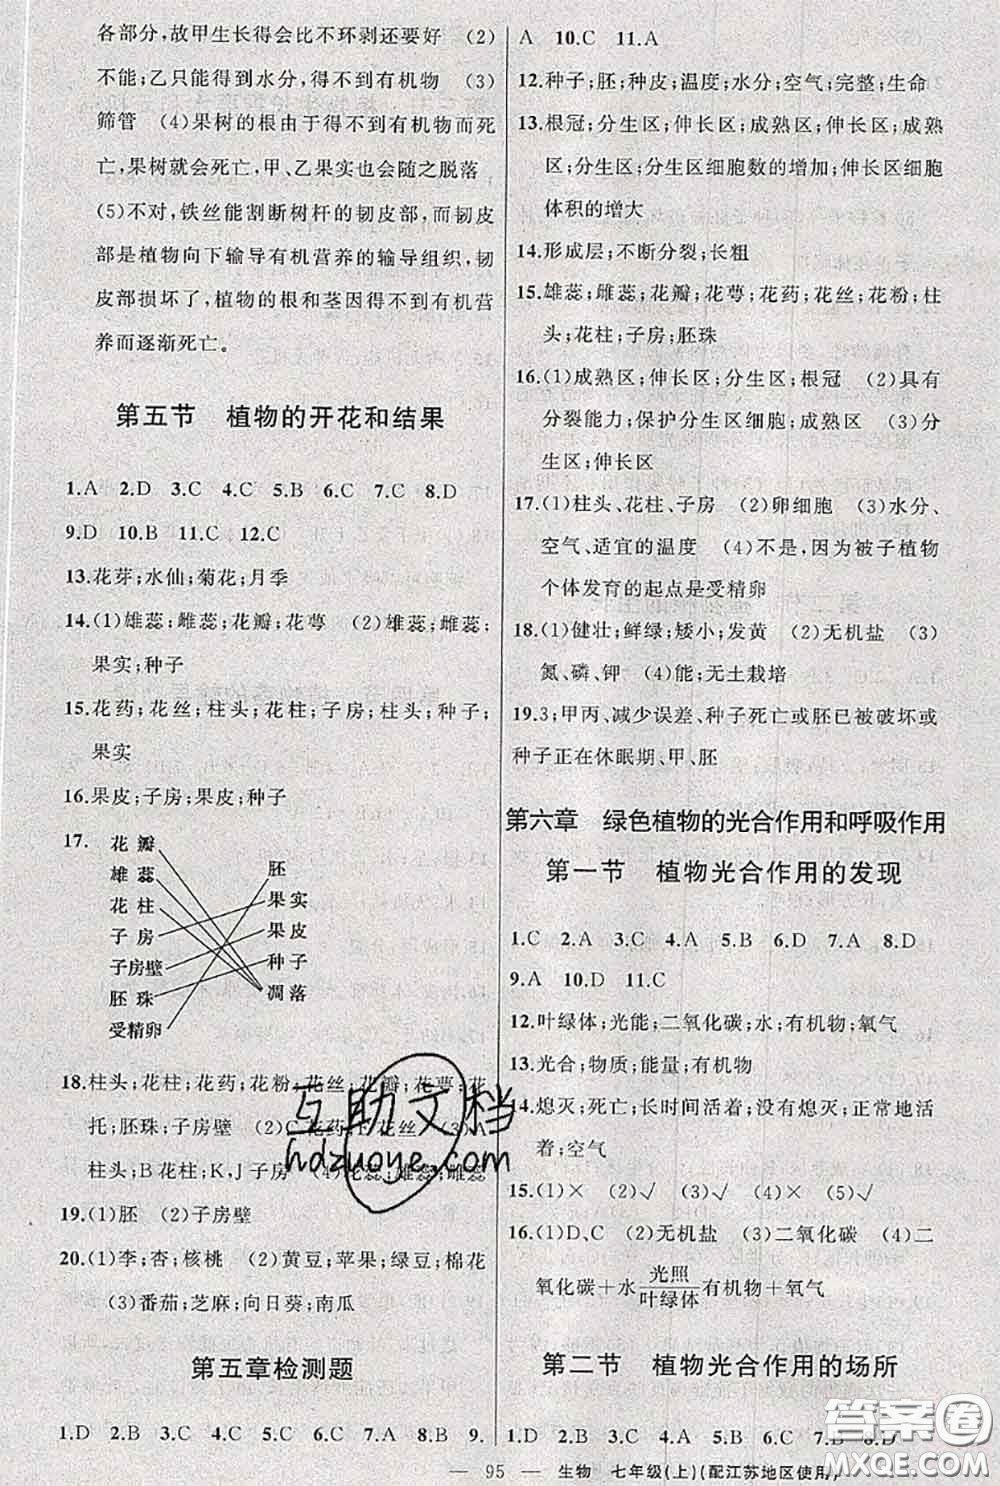 各部分,故甲生长得会比不环剥还要好　(2)
不能;乙只能得到水分,得不到有机物　(3)
筛管　(4)果树的根由于得不到有机物而死
亡,果树就会死亡,甲、乙果实也会随之脱落
(5)不对,铁丝能割断树杆的韧皮部,而韧皮
部是植物向下输导有机营养的输导组织,韧
皮部损坏了,植物的根和茎因得不到有机营
养而逐渐死亡。
第五节　植物的开花和结果
1.A　2.D　3.C　4.C　5.B　6.C　7.C　8.D
9.D　10.B　11.C　12.C
13.花芽;水仙;菊花;月季
14.(1)雄蕊;雌蕊;花瓣;花萼　(2)雄蕊;雌蕊;
果实;种子
15.花药;花丝;柱头;花柱;子房;柱头;种子;
果实
16.果皮;子房;果皮;种子
17.
花瓣
雄蕊
花柱
子房
子房壁
胚珠
受精卵
胚
果实
果皮
种子
凋落
18.柱头;花柱;花药;花粉;花丝;花瓣;花萼;花
托;胚珠;子房壁　(2)C花药;E花丝　(3)A
柱头;B花柱;K,J子房　(4)花蕊;雄蕊;雌蕊
19.(1)胚　(2)子房壁
20.(1)李;杏;核桃　(2)黄豆;苹果;绿豆;棉花
(3)番茄;芝麻;向日葵;南瓜
第五章检测题
1.D　2.B　3.C　4.C　5.D　6.D　7.C　8.B　9.
A　10.C　11.A
12.种子;胚;种皮;温度;水分;空气;完整;生命
13.根冠;分生区;伸长区;成熟区;伸长区;成熟
区;分生区;分生区细胞数的增加;伸长区细胞
体积的增大
14.形成层;不断分裂;长粗
15.雄蕊;雌蕊;花瓣;花萼;花药;花丝;花粉;柱
头;花柱;子房;胚珠
16.(1)成熟区;伸长区;分生区;根冠　(2)具有
分裂能力;保护分生区细胞;成熟区　(3)分
生区;伸长区
17.(1)柱头、花柱、子房　(2)卵细胞　(3)水分、
空气、适宜的温度　(4)不是,因为被子植物
个体发育的起点是受精卵
18.(1)健壮;鲜绿;矮小;发黄　(2)无机盐　(3)
氮、磷、钾　(4)能;无土栽培
19.3;甲丙、减少误差、种子死亡或胚已被破坏或
种子正在休眠期、甲、胚
第六章　绿色植物的光合作用和呼吸作用
第一节　植物光合作用的发现
1.C　2.A　3.C　4.A　5.B　6.D　7.A　8.D
9.A　10.D　11.C
12.叶绿体;光能;二氧化碳;水;有机物;氧气
13.光合;物质;能量;有机物
14.熄灭;死亡;长时间活着;没有熄灭;正常地活
着;空气
15.(1)×　(2)√　(3)√　(4)×　(5)√
16.(1)D、C　(2)无机盐　(3)二氧化碳　(4)二
氧化碳+水 光照/叶绿体 有机物+氧气
第二节　植物光合作用的场所
1.D　2.B　3.D　4.B　5.C
— 95 —　生物　七年级(上)(配江苏地区使用)
互助文档
hdzuoye.com
答案卷
MXQE.COM